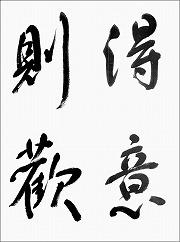 得意
則歡